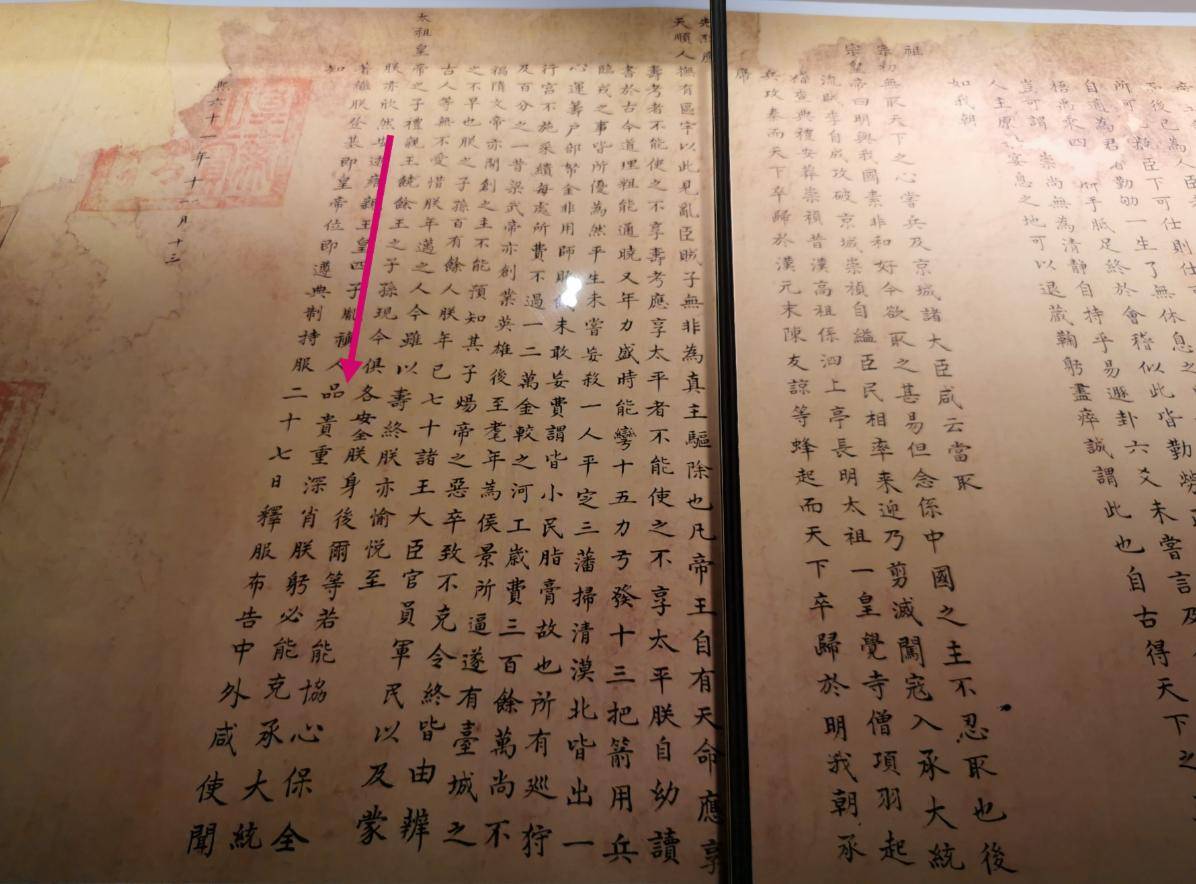 不後已為人臣
所可擬臣下可仕則仕可
自適為君者勤劬一生了無休息之
梧禹乘四胼手胝足終於會稽似此皆勤勞
豈可謂崇尚無為清靜自持乎易遯卦六爻未嘗言及
人主原宴息之地可以退藏鞠躬盡瘁誠謂此也自古得天下之
如我朝
祖
宗初無取天下之心嘗兵及京城諸大臣咸云當取
宗皇帝曰明與我國素非和好今欲取之甚易但念係中國之主不忍取也後
流賊李自成攻破京城崇禎自縊臣民相率來迎乃剪滅闖寇入承大統
稽查典禮安葬崇禎昔漢高祖係泗上亭長明太祖一皇覺寺僧項羽起
兵攻秦而天下卒歸於漢元末陳友諒等蜂起而天下卒歸於明我朝承
席
先烈應
天順人撫有區宇以此見亂臣賊子無非為真主驅除也凡帝王自有天命應享
壽考者不能使之不享壽考應享太平者不能使之不享太平朕自幼讀
書於古今道理粗能通曉又年力盛時能彎十五力弓發十三把箭用兵
臨戎之事皆所優為然平生未嘗妄殺一人平定三藩掃清漠北皆出一
心運籌戶部帑金非用師賑饑未敢妄費謂皆小民脂膏故也所有巡狩
行宮不施采繢每處所費不過一二萬金較之河工歲費三百餘萬尚不
及百分之一昔梁武帝亦創業英雄後至耄年為侯景所逼遂有臺城之
禍隋文帝亦開創之主不能預知其子煬帝之惡卒致不克令終皆由辨
之不早也朕之子孫百有餘人朕年已七十諸王大臣官員軍民以及蒙
古人等無不愛惜朕年邁之人今雖以壽終朕亦愉悅至
太祖皇
帝之子禮親王饒餘王之子孫現今俱各安全朕身後爾等若能協心保全
朕亦欣然安逝雍親王皇四子胤禛人品貴重深肖朕躬必能克承大統
著繼朕登基即皇帝位即遵典制持服二十七日釋服布告中外咸使聞
知
熙六十一年十一月十三